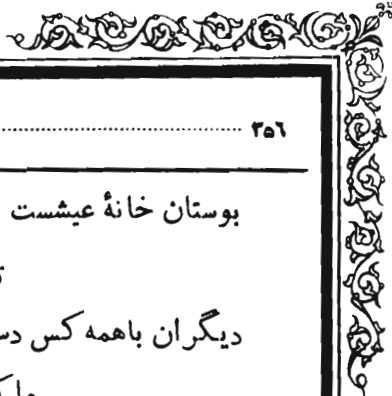 ۳۵۶
بوستان خانهٔ عیشست
دیگران باهمه کس